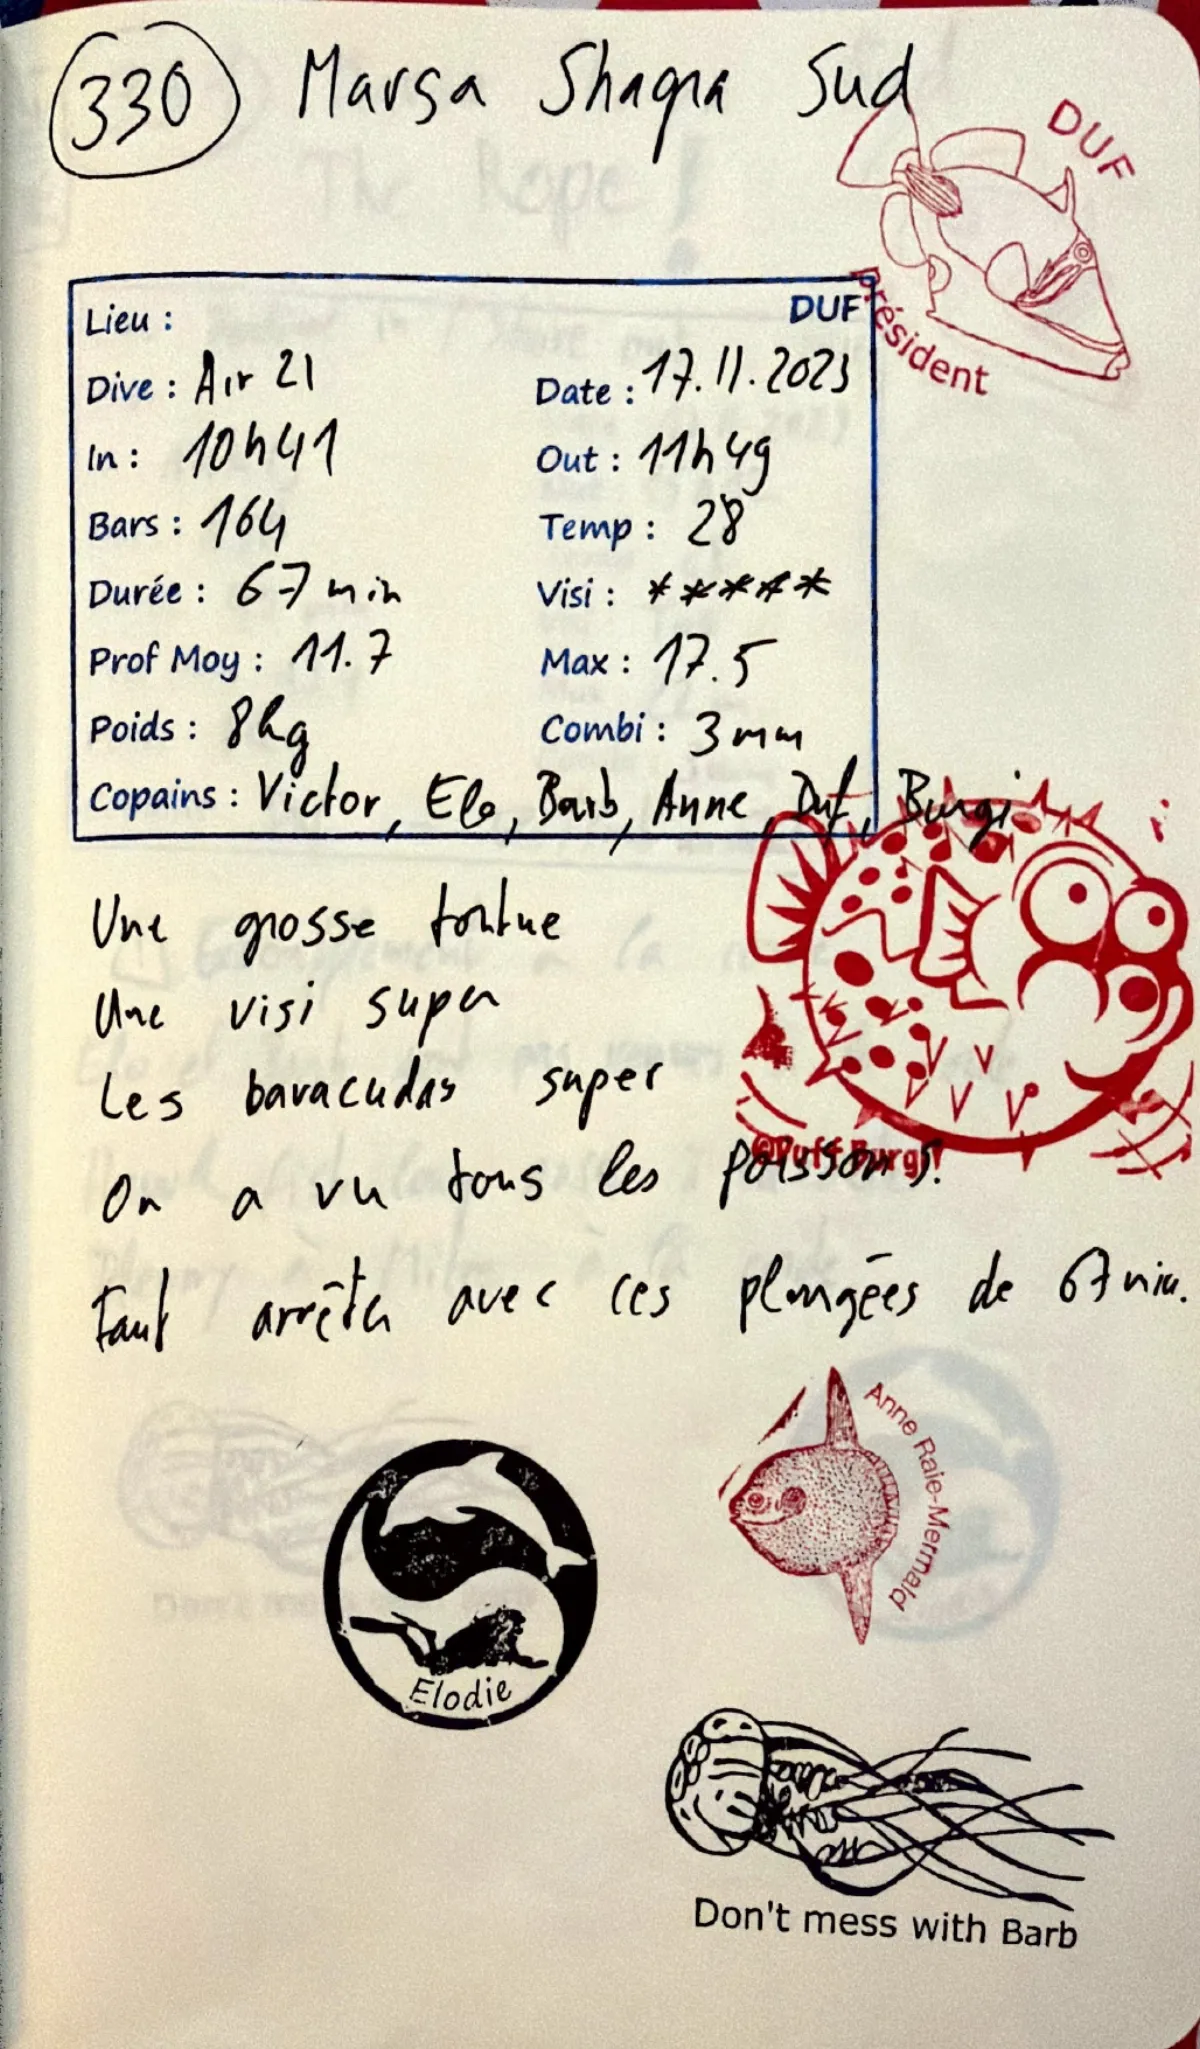 330 Marsa Shagra Sud
DUF
Président
Lieu : DUF
Dive : Air 21 Date : 17.11.2023
In : 10h41 Out : 11h49
Bars : 164 Temp : 28
Durée : 67 min Visi : *****
Prof Moy : 11.7 Max : 17.5
Poids : 8kg Combi : 3mm
Copains : Victor, Elo, Barb, Anne, Duf, Burgi
Une grosse tortue
Une visi super
Les baracudas super
©Puff Burgi
On a vu tous les poissons.
Faut arrêter avec ces plongées de 67min.
Anne Raie-Mermald
Elodie
Don't mess with Barb